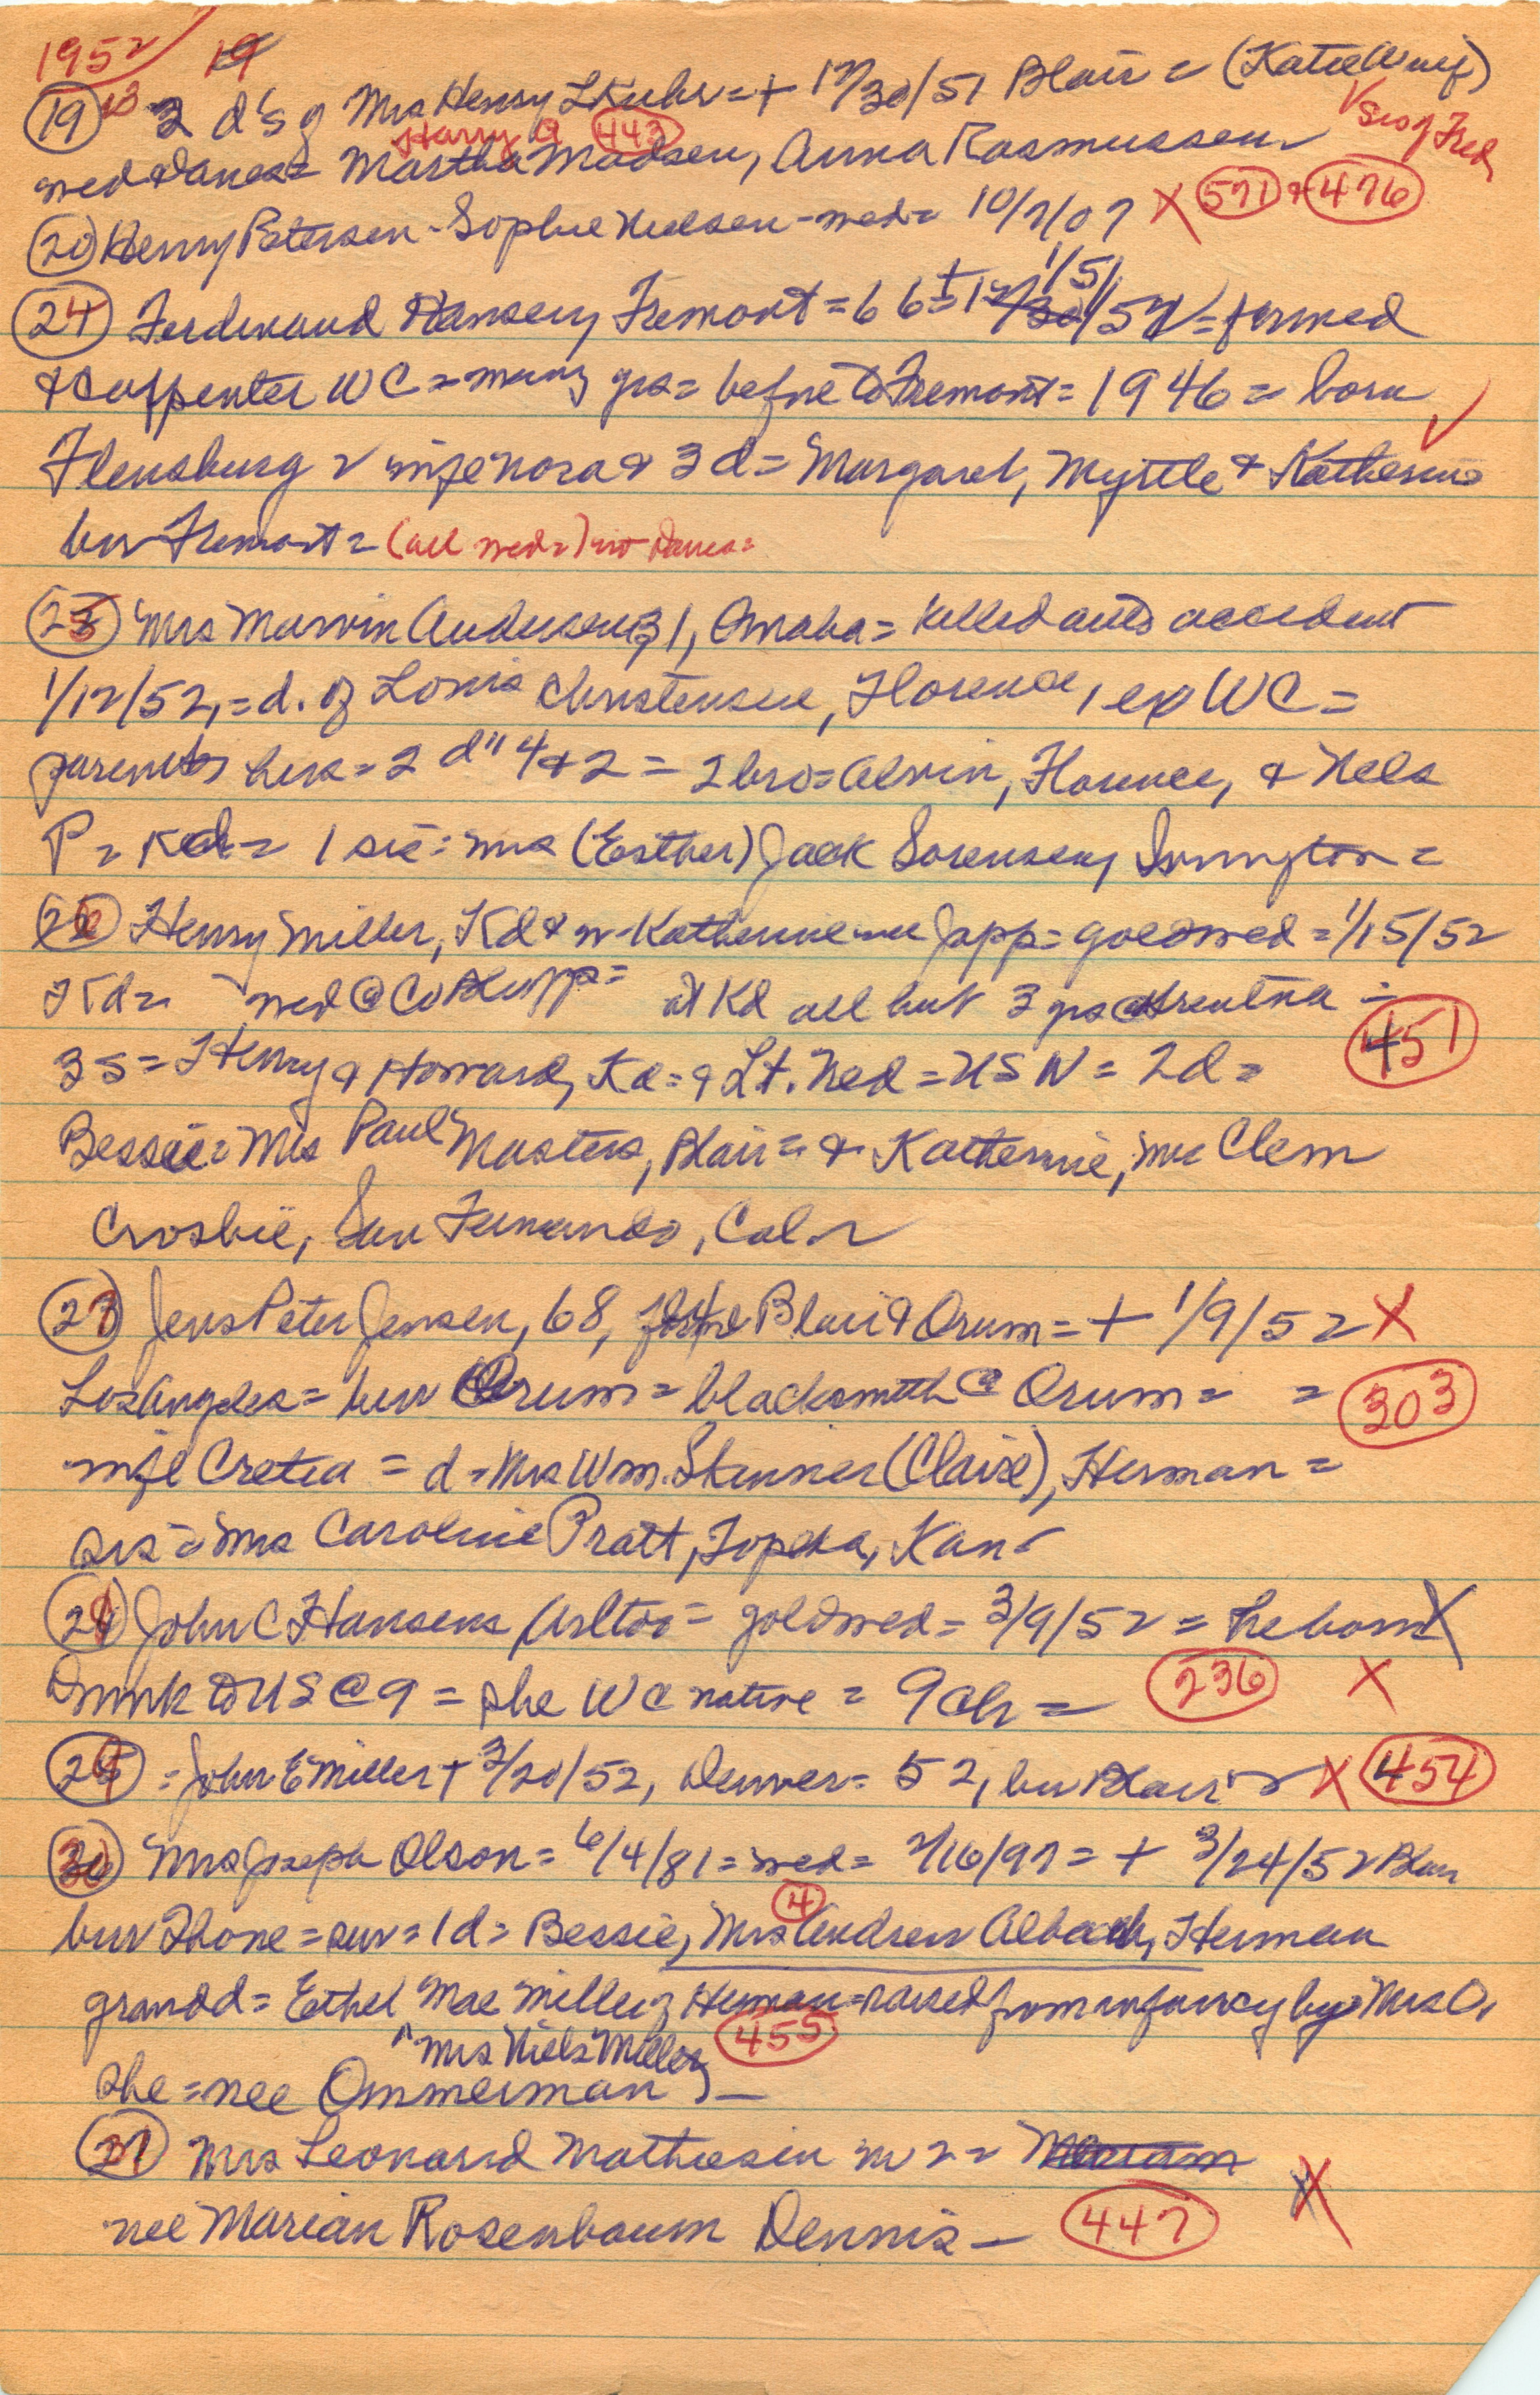 1952 19
(19) 13 2 d's of Mrs Henry L Kuhr = + 12/30/51 Blair = (Katie Wulf)
✓ Sis of Fred
Harry A (443)
wed Danes = Martha Madsen, Anna Rasmussen
(20) Henry Petersen - Sophie Nielsen - wed = 10/2/07 X (571) + (476)
1/5/
(24) Ferdinand Hansen, Fremont = 66 = + 12/30/52 = farmed
& carpenter WC = many yrs = before to Fremont = 1946 = born ✓
Flensburg = wife Nora & 3 d = Margaret, Myrtle & Katherine
bur Fremont = (all wed =) not Danes =
(25) Mrs Marvin Andersen, 31, Omaha = killed auto accident
1/12/52, = d. of Louis Christensen, Florence, ex WC =
parents hers = 2 d" 4 & 2 = 2 bro = Alvin, Florence, & Nels
P = Kd = 1 sis = Mrs (Esther) Jack Sorensen, Irvington =
(26) Henry Miller, Kd & w - Katherine nee Japp = gold wed = 1/15/52
Kd = wed @ Co Blupps = at Kd all but 3 yrs @ =
3 s = Henry & Howard, Kd = & Lt. Ned = USN = 2d = (451)
Bessie = Mrs Paul Masters, Blair = & Katherine, Mrs Clem
Crosbie, San Fernando, Cal =
(27) Jens Peter Jensen, 68, Blair & Orum = + 1/9/52 X
Los Angeles = bur Orum = blacksmith @ Orum = = (303)
wife Cretia = d = Mrs Wm. Skinner (Claire), Herman =
sis = Mrs Caroline Pratt, Topeka, Kan =
(28) John C Hansens, Arlton = gold wed = 3/9/52 = he born X
Dnmk to US @ 9 = she WC native = 9 ch = (236) X
(29) = John E Miller + 3/20/52, Denver = 52, bur Blair = X (454)
(30) Mrs Joseph Olson = 6/4/81 = wed = 2/16/97 = + 3/24/52 Blair
(4)
bur Ihone = sur = 1 d = Bessie, Mrs Andrew Alback, Herman
grandd = Ethel Mae Miller, Herman = raised from infancy by Mrs O,
^ Mrs Niels Miller (455)
she = nee Ommerman, —
(31) Mrs Leonard Mathiesen no 2 = Miriam
nee Marian Rosenbaum Dennis — (447) X